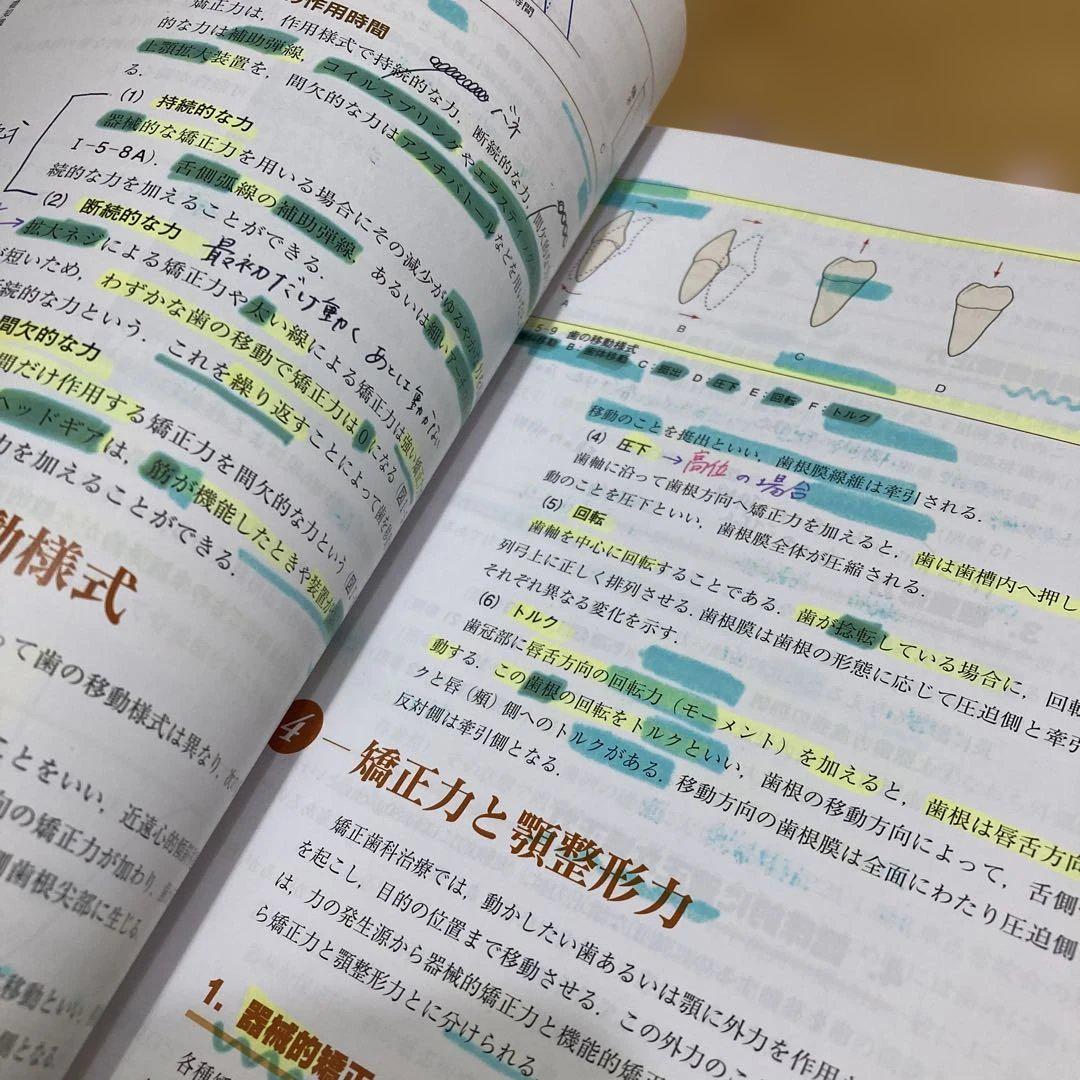 の作用時間
矯正力は，作用様式で持続的な力，断続的な力，
的な力は補助弾線，コイルスプリングやエラスティック
上顎拡大装置を，間欠的な力はアクチバトールなどを用い
る．
バネ
(1) 持続的な力
器械的な矯正力を用いる場合にその減少がゆるやか
I-5-8A）．舌側弧線の補助弾線，あるいは細いアー
続的な力を加えることができる．
(2) 断続的な力
最初だけ動く あとは動かない
拡大ネジによる矯正力や太い線による矯正力は強い
が短いため，わずかな歯の移動で矯正力は0になる（図
続的な力という．これを繰り返すことによって歯を
間欠的な力
間だけ作用する矯正力を間欠的な力という（図
ヘッドギアは，筋が機能したときや装置が
力を加えることができる．
動様式
って歯の移動様式は異なり，次
ことをいい，近遠心的
向の矯正力が加わり，
側歯根尖部に生じる．
移動といい，
側となる．
A
B
C
D
5-9 歯の移動様式
B：歯体移動 C：挺出 D：圧下 E：回転 F：トルク
移動のことを挺出といい，歯根膜線維は牽引される．
(4) 圧下 →高位の場合
歯軸に沿って歯根方向へ矯正力を加えると，歯は歯槽内へ押し
動のことを圧下といい，歯根膜全体が圧縮される．
(5) 回転
歯軸を中心に回転することである．歯が捻転している場合に，回転
列弓上に正しく排列させる．歯根膜は歯根の形態に応じて圧迫側と牽引
それぞれ異なる変化を示す．
(6) トルク
歯冠部に唇舌方向の回転力（モーメント）を加えると，歯根は唇舌方向
動する．この歯根の回転をトルクといい，歯根の移動方向によって，舌側
クと唇（頰）側へのトルクがある．移動方向の歯根膜は全面にわたり圧迫側
反対側は牽引側となる．
4 矯正力と顎整形力
矯正歯科治療では，動かしたい歯あるいは顎に外力を作用
を起こし，目的の位置まで移動させる．この外力のこ
は，力の発生源から器械的矯正力と機能的矯正
ら矯正力と顎整形力とに分けられる．
1. 器械的矯正
各種矯